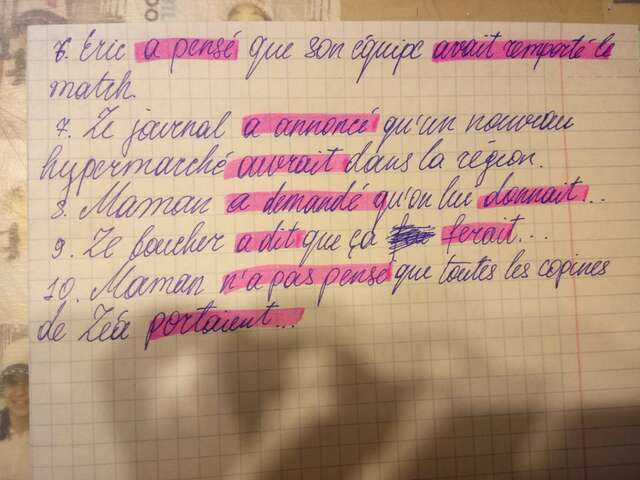 6. Eric a pensé que son équipe avait remporté le
match.
7. Le journal a annoncé qu'un nouveau
hypermarché ouvrait dans la région.
8. Maman a demandé qu'on lui donnait...
9. Le boucher a dit que ça ferait...
10. Maman n'a pas pensé que toutes les copines
de Léa portaient...